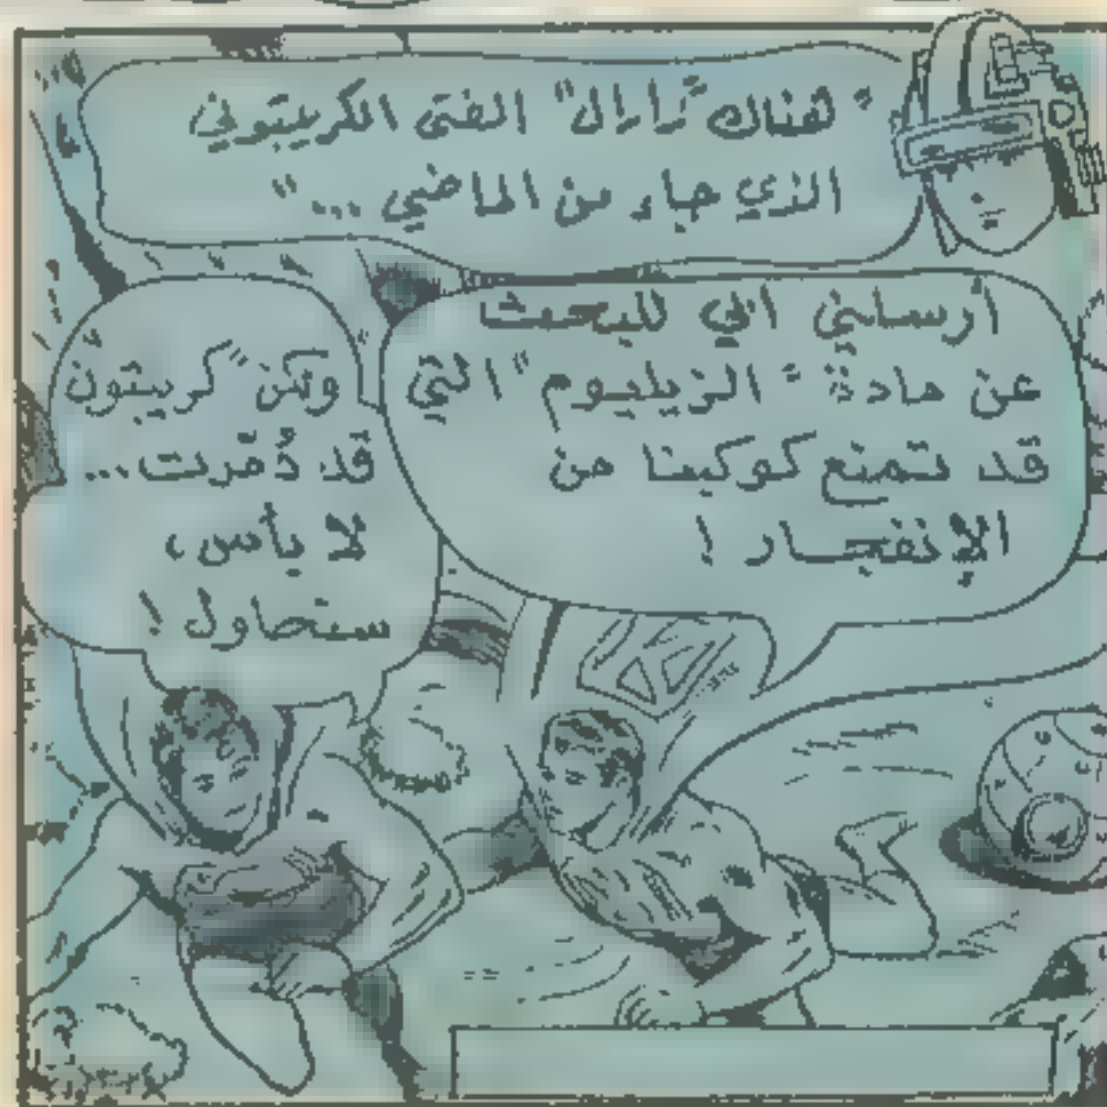 "هناك "زارال" الفتى الكريبتوني
الذي جاء من الماضي ..."
أرسلني ابي للبحث
عن مادة "الزيليوم" التي
قد تمنع كوكبنا من
الإنفجار !
ولكن "كريبتون"
قد دُمّرت...
لا بأس،
سنحاول !